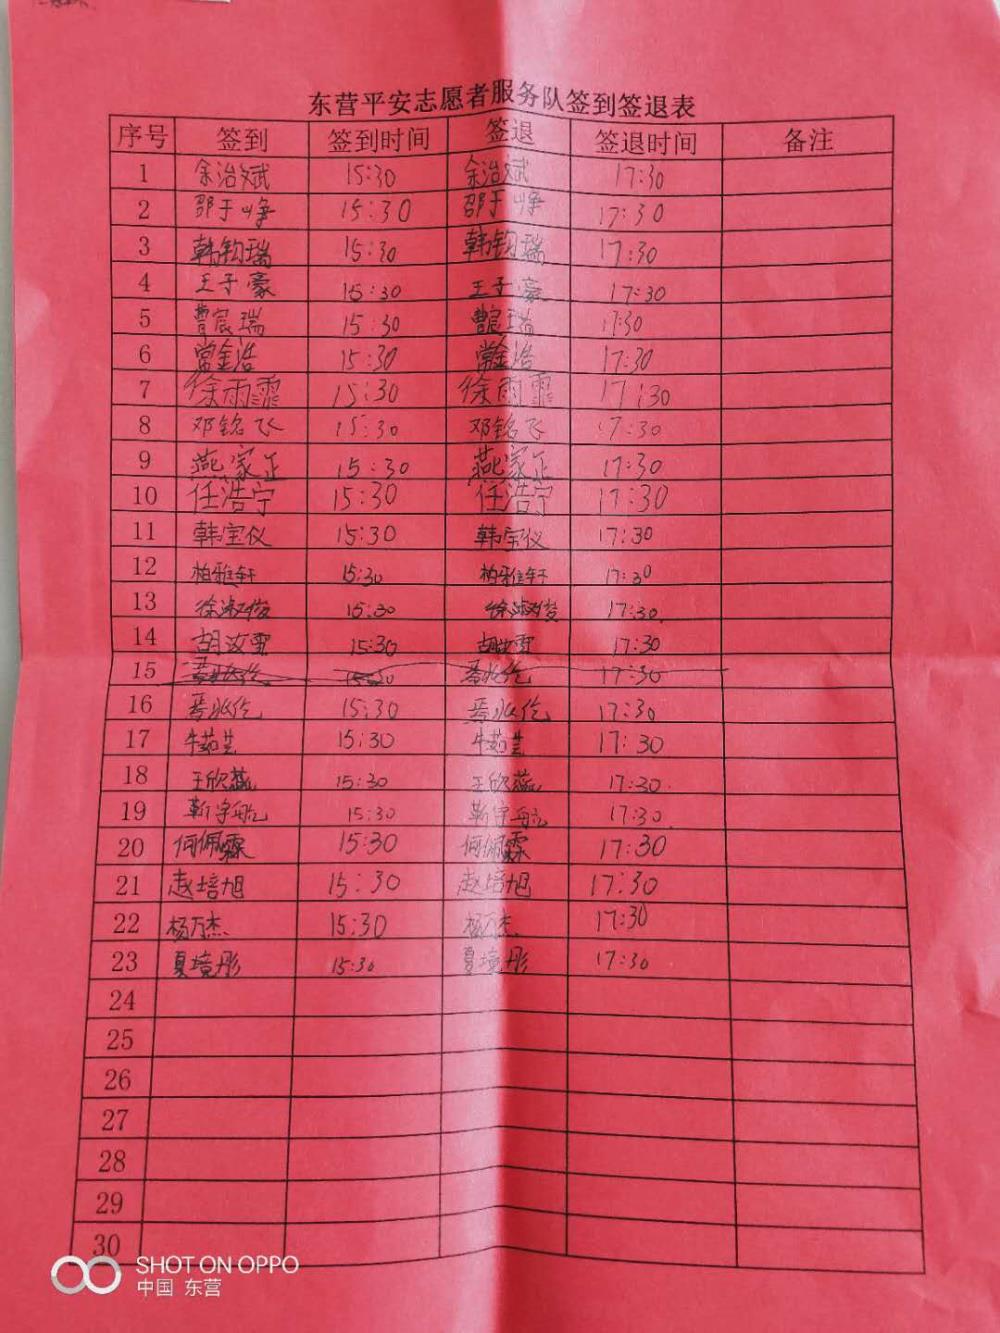 东营平安志愿者服务队签到签退表
序号 签到 签到时间 签退 签退时间 备注
1 余治斌 15:30 余治斌 17:30
2 邵于峥 15:30 邵于峥 17:30
3 韩钧瑞 15:30 韩钧瑞 17:30
4 王子豪 15:30 王子豪 17:30
5 曹宸瑞 15:30 曹宸瑞 17:30
6 常金浩 15:30 常金浩 17:30
7 徐雨霏 15:30 徐雨霏 17:30
8 邓铭飞 15:30 邓铭飞 17:30
9 燕家正 15:30 燕家正 17:30
10 任浩宁 15:30 任浩宁 17:30
11 韩宝仪 15:30 韩宝仪 17:30
12 柏雅轩 15:30 柏雅轩 17:30
13 徐淑俊 15:30 徐淑俊 17:30
14 胡汝雪 15:30 胡汝雪 17:30
15 15:30 17:30
16 15:30 17:30
17 牛茹芸 15:30 牛茹芸 17:30
18 王欣燕 15:30 王欣燕 17:30
19 靳宇航 15:30 靳宇航 17:30
20 何佩霖 15:30 何佩霖 17:30
21 赵培旭 15:30 赵培旭 17:30
22 杨万杰 15:30 杨万杰 17:30
23 夏境彤 15:30 夏境彤 17:30
24
25
26
27
28
29
30
SHOT ON OPPO
中国 东营